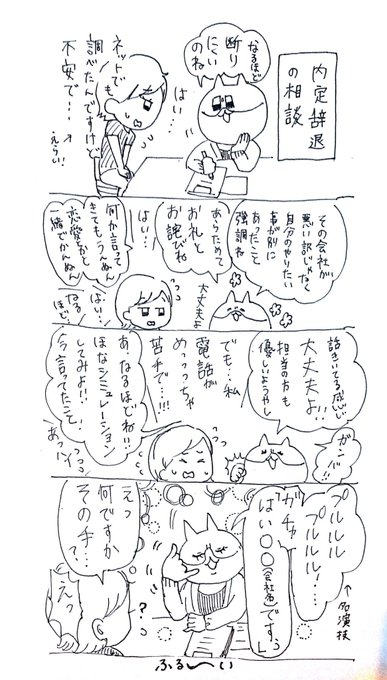 内定辞退
の相談
なるほど
断り
にくい
のね
はい…
ネットで
も
調べたんですけど
不安で…
↑えらい!
その会社が
悪い訳じゃなく
自分のやりたい
事が別に
あったこと
強調ね
あらためて
お礼と
お詫びね
大丈夫よ
はい…
何か言って
きてもうんぬん
恋愛とかと
一緒でかんぬん
はい…
なる
ほど…
話きいてる感じ
大丈夫よ!!
担当の方も
優しいようやし
ガンバ!!
でも…私
電話が
めっっっちゃ
苦手で…!!!
あ、なるほどね!!
ほなシミュレーション
してみよ!!
今言ってたこと!
あっハイっ
プルルル
プルルル!…
「ガチャ
はい〇〇(会社名)ですっ」
↑名演技
えっ
何ですか
その手…?
?
えっ
ふる〜い